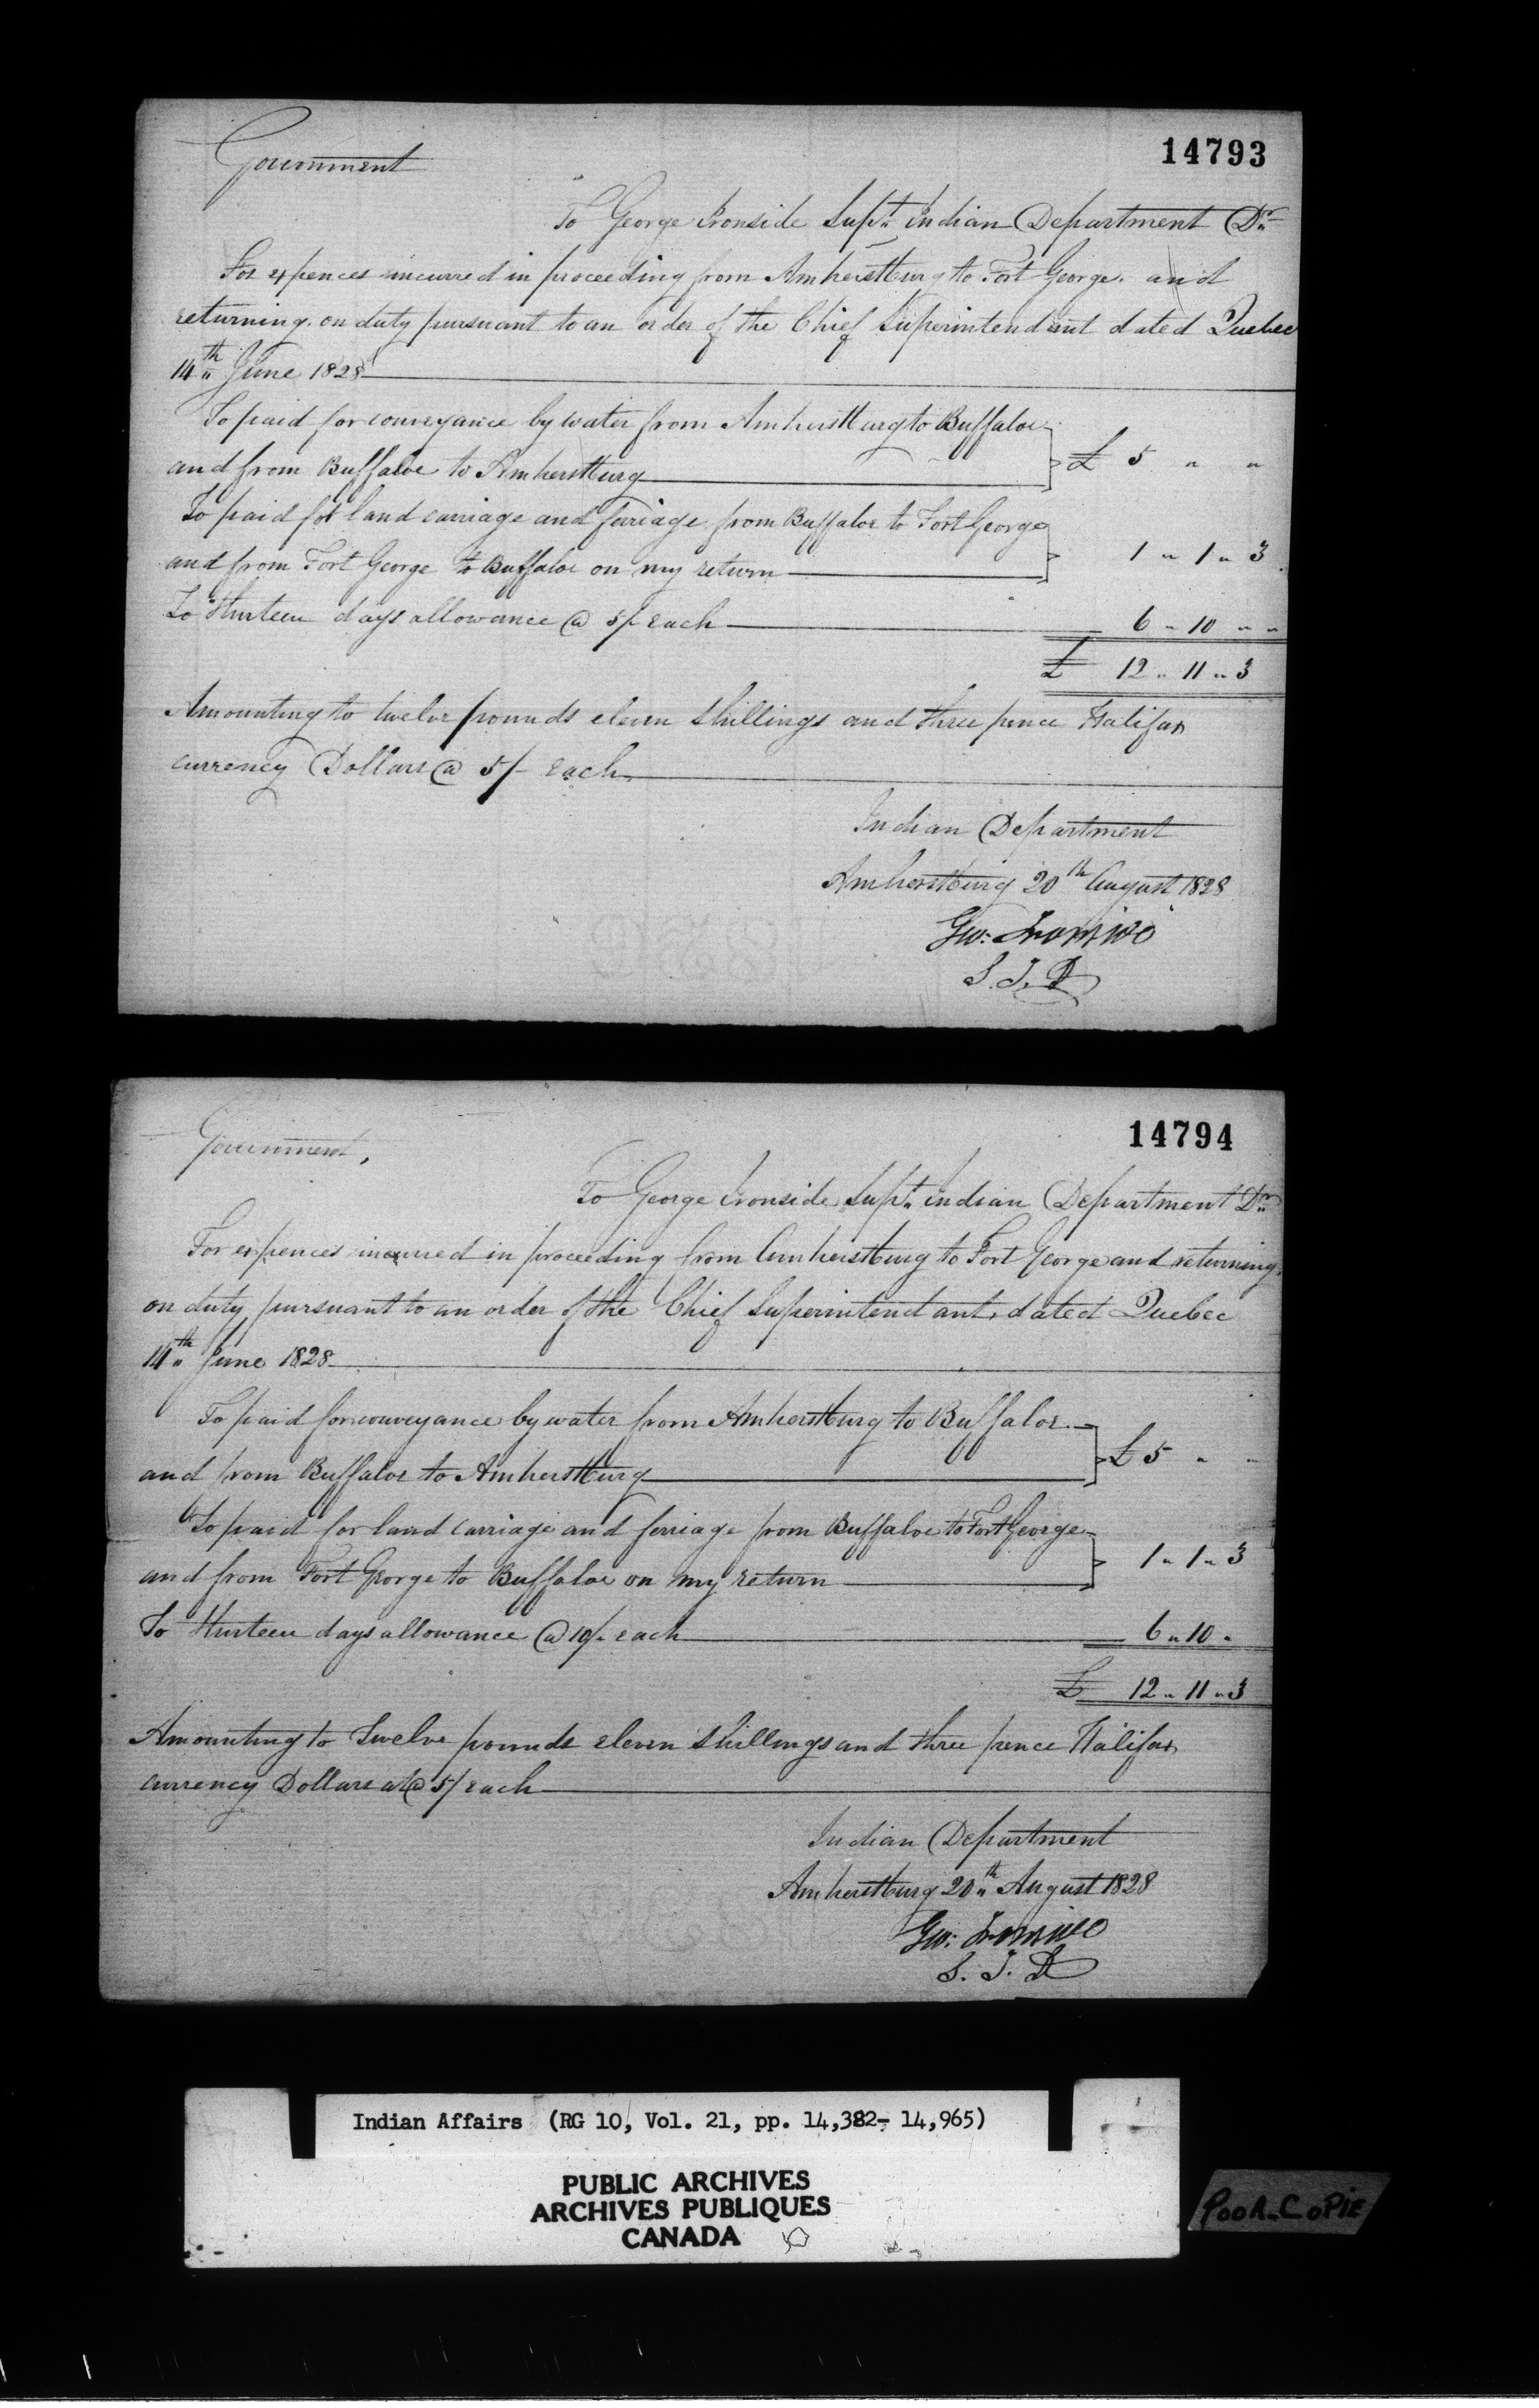 14793
Government
To George Ironside Supt. Indian Department Dr.
For expences incurred in proceeding from Amherstburg to Fort George. and
returning. on duty pursuant to an order of the Chief Superintendant dated Quebec
14th June 1828
To paid for conveyance by water from Amherstburg to Buffaloe
and from Buffaloe to Amherstburg £ 5 " "
To paid for land carriage and ferriage from Buffaloe to Fort George
and from Fort George to Buffaloe on my return 1 " 1 " 3
To thirteen days allowance @ 5/- each 6 " 10 " "
£ 12 " 11 " 3
Amounting to twelve pounds eleven shillings and three pence Halifax
currency Dollars @ 5/- each
Indian Department
Amherstburg 20th August 1828
Geo: Ironside
S. I. D
14794
Government,
To George Ironside Supt. Indian Department Dr.
For expences incurred in proceeding from Amherstburg to Fort George and returning,
on duty pursuant to an order of the Chief Superintendant, dated Quebec
14th June 1828
To paid for conveyance by water from Amherstburg to Buffaloe
and from Buffaloe to Amherstburg £ 5 " "
To paid for land carriage and ferriage from Buffaloe to Fort George
and from Fort George to Buffaloe on my return 1 " 1 " 3
To thirteen days allowance @ 10/- each 6 " 10 "
£ 12 " 11 " 3
Amounting to Twelve pounds eleven shillings and three pence Halifax
currency Dollars at @ 5/ each
Indian Department
Amherstburg 20th August 1828
Geo: Ironside
S. I. D
Indian Affairs (RG 10, Vol. 21, pp. 14,382- 14,965)
PUBLIC ARCHIVES
ARCHIVES PUBLIQUES
CANADA
POOR COPIE